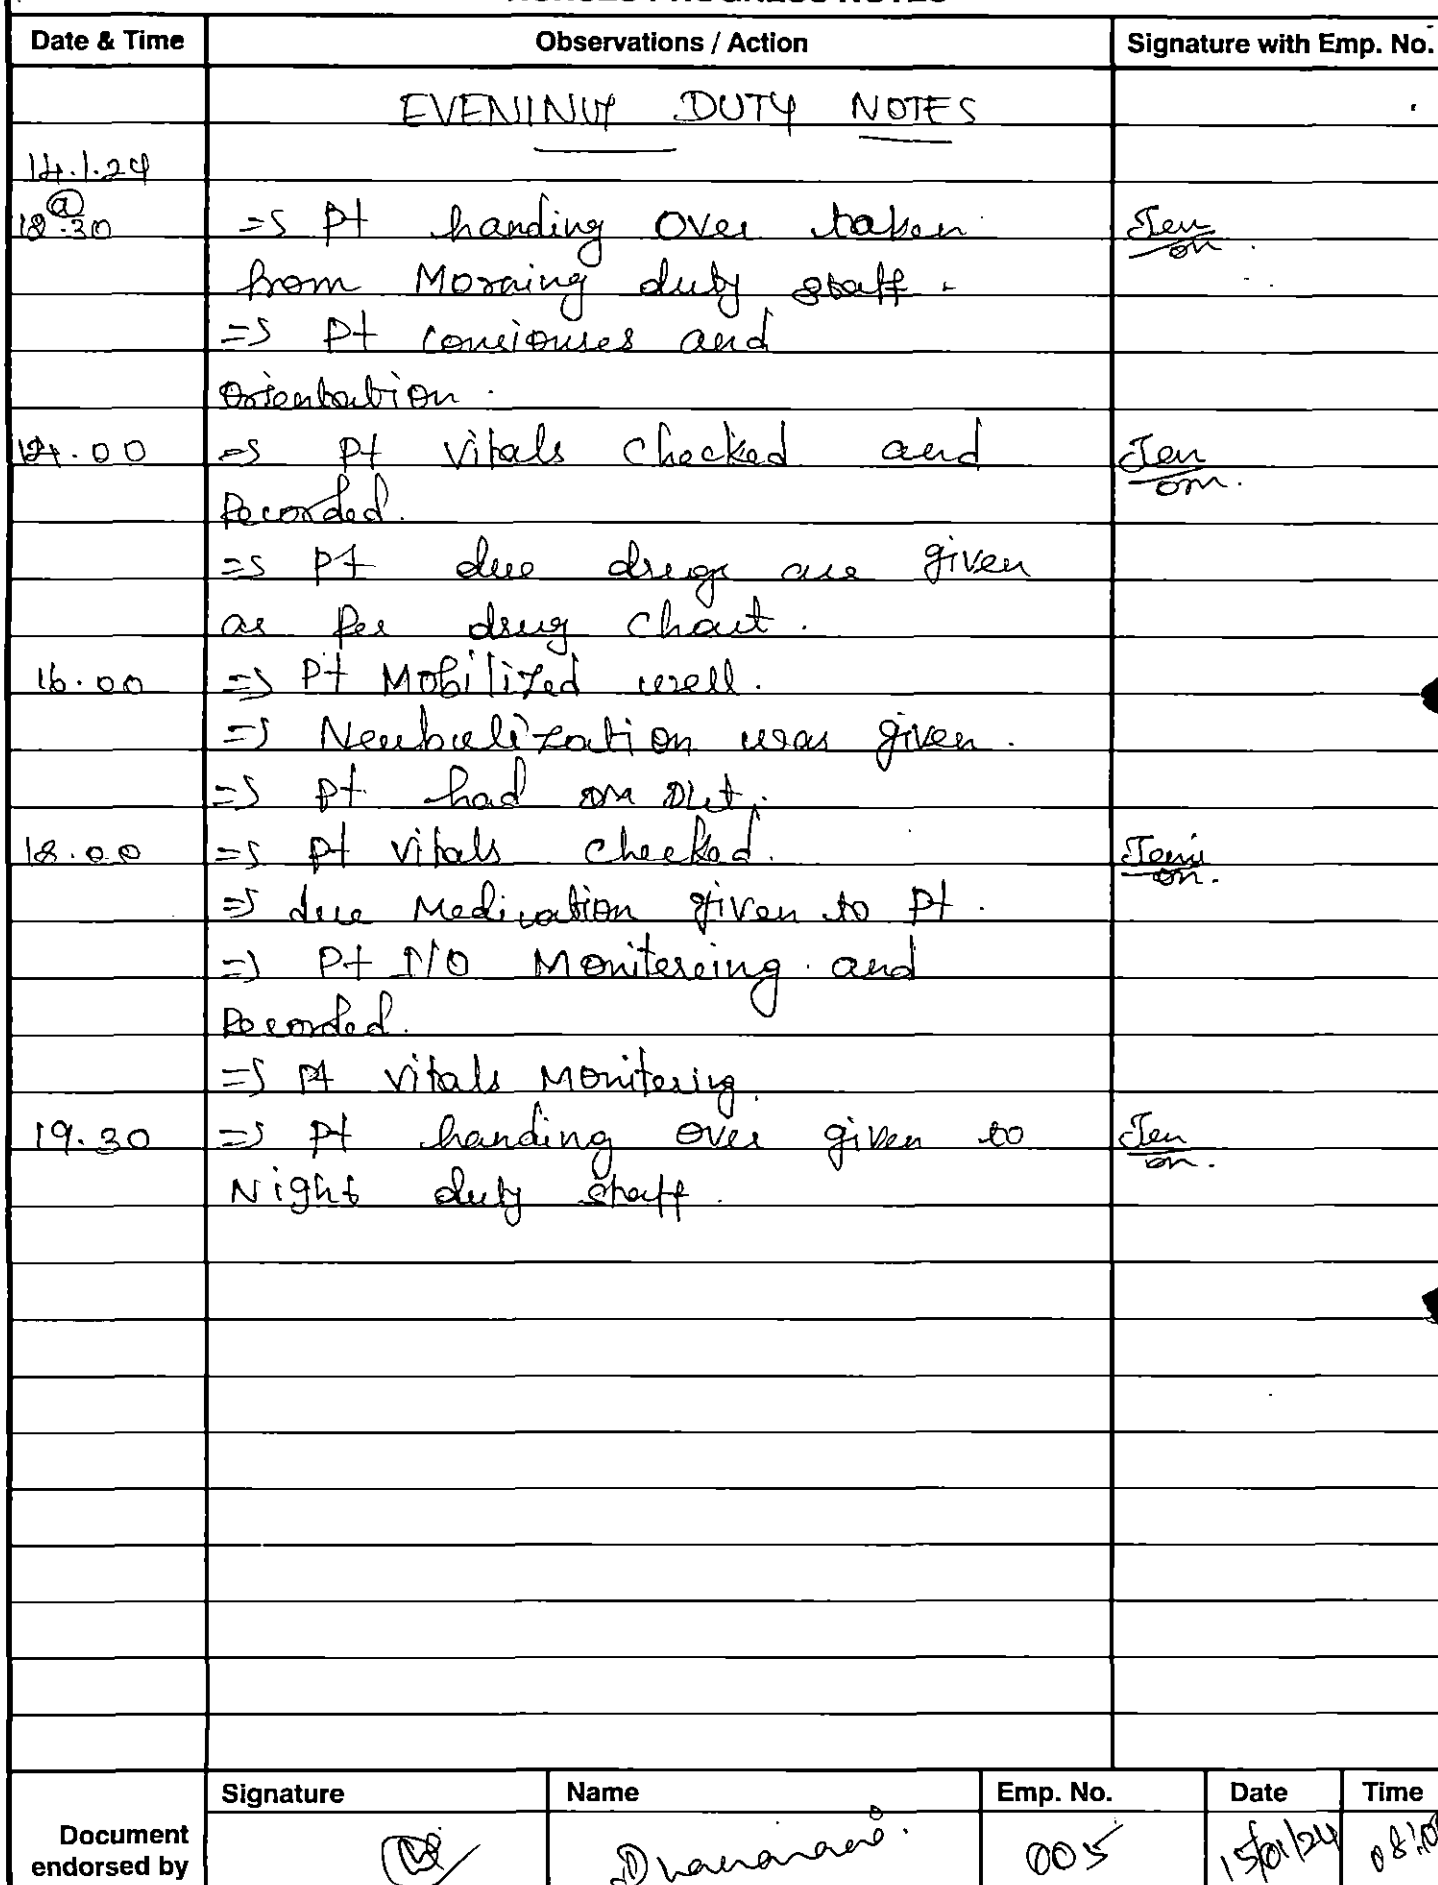 Date & Time Observations / Action Signature with Emp. No.
EVENING DUTY NOTES
14.1.24
@
18.30 => Pt handing over taken
from Morning duty staff.
=> Pt consiouses and
Orientation.
14.00 => Pt vitals checked and
Recorded.
=> Pt due drugs are given
as per drug chart.
16.00 => Pt Mobilized well.
=> Neubulization was given.
=> Pt had
18.00 => Pt vitals checked.
=> due Medication given to Pt.
=> Pt I/O Monitereing and
Recorded.
=> Pt vitals Monitoring
19.30 => Pt handing over given to
Night duty staff.
Signature Name Emp. No. Date Time
Document
endorsed by 005 15/01/24